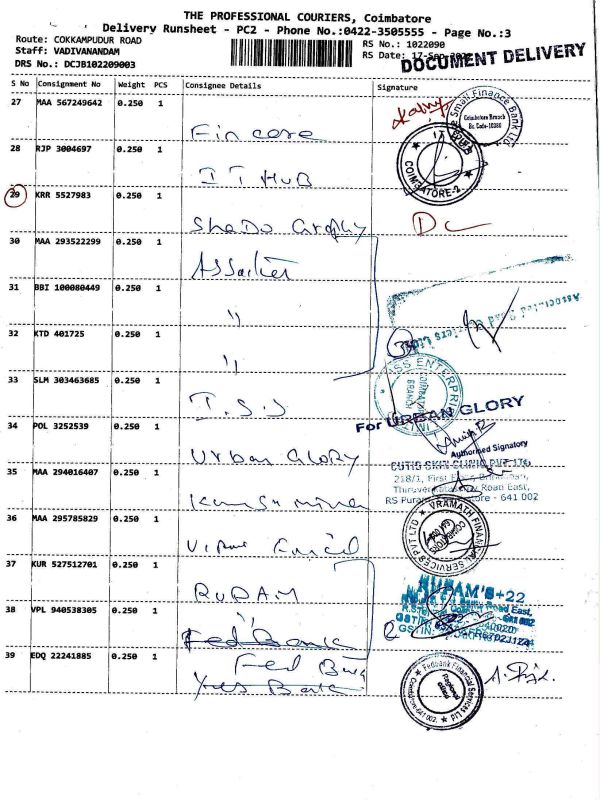 THE PROFESSIONAL COURIERS, Coimbatore
Delivery Runsheet - PC2 - Phone No.:0422-3505555 - Page No.:3
Route: COKKAMPUDUR ROAD
Staff: VADIVANANDAM
DRS No.: DCJB102209003
RS No.: 1022090
RS Date: 17-Sep
DOCUMENT DELIVERY
S No Consignment No Weight PCS Consignee Details Signature
27 MAA 567249642 0.250 1
Fincare
Small Finance Bank Ltd
Coimbatore Branch
28 RJP 3004697 0.250 1
IT HUB
COIMBATORE-2
29 KRR 5527983 0.250 1
DC
30 MAA 293522299 0.250 1
31 BBI 100080449 0.250 1
"
Associated Road Carriers Ltd
32 KTD 401725 0.250 1
"
33 SLM 303463685 0.250 1
T.S.S
TSS ENTERPRISE
BRANCH
For URBAN GLORY
34 POL 3252539 0.250 1
Urban GLORY
Authorised Signatory
35 MAA 294016407 0.250 1
CUTIS SKIN CLINIC PVT LTD
218/1, First Floor,
Road East,
641 002
36 MAA 295785829 0.250 1
VIRAMATH FINANCIAL SERVICES PVT LTD
37 KUR 527512701 0.250 1
RUBAM
RUBAM'S+22
Road East,
38 VPL 940538305 0.250 1
"
Fed Bank
GSTIN:
39 EDQ 22241885 0.250 1
Fed Bank
Yes Bank
Fedbank Financial Services Ltd
Coimbatore-641 002.